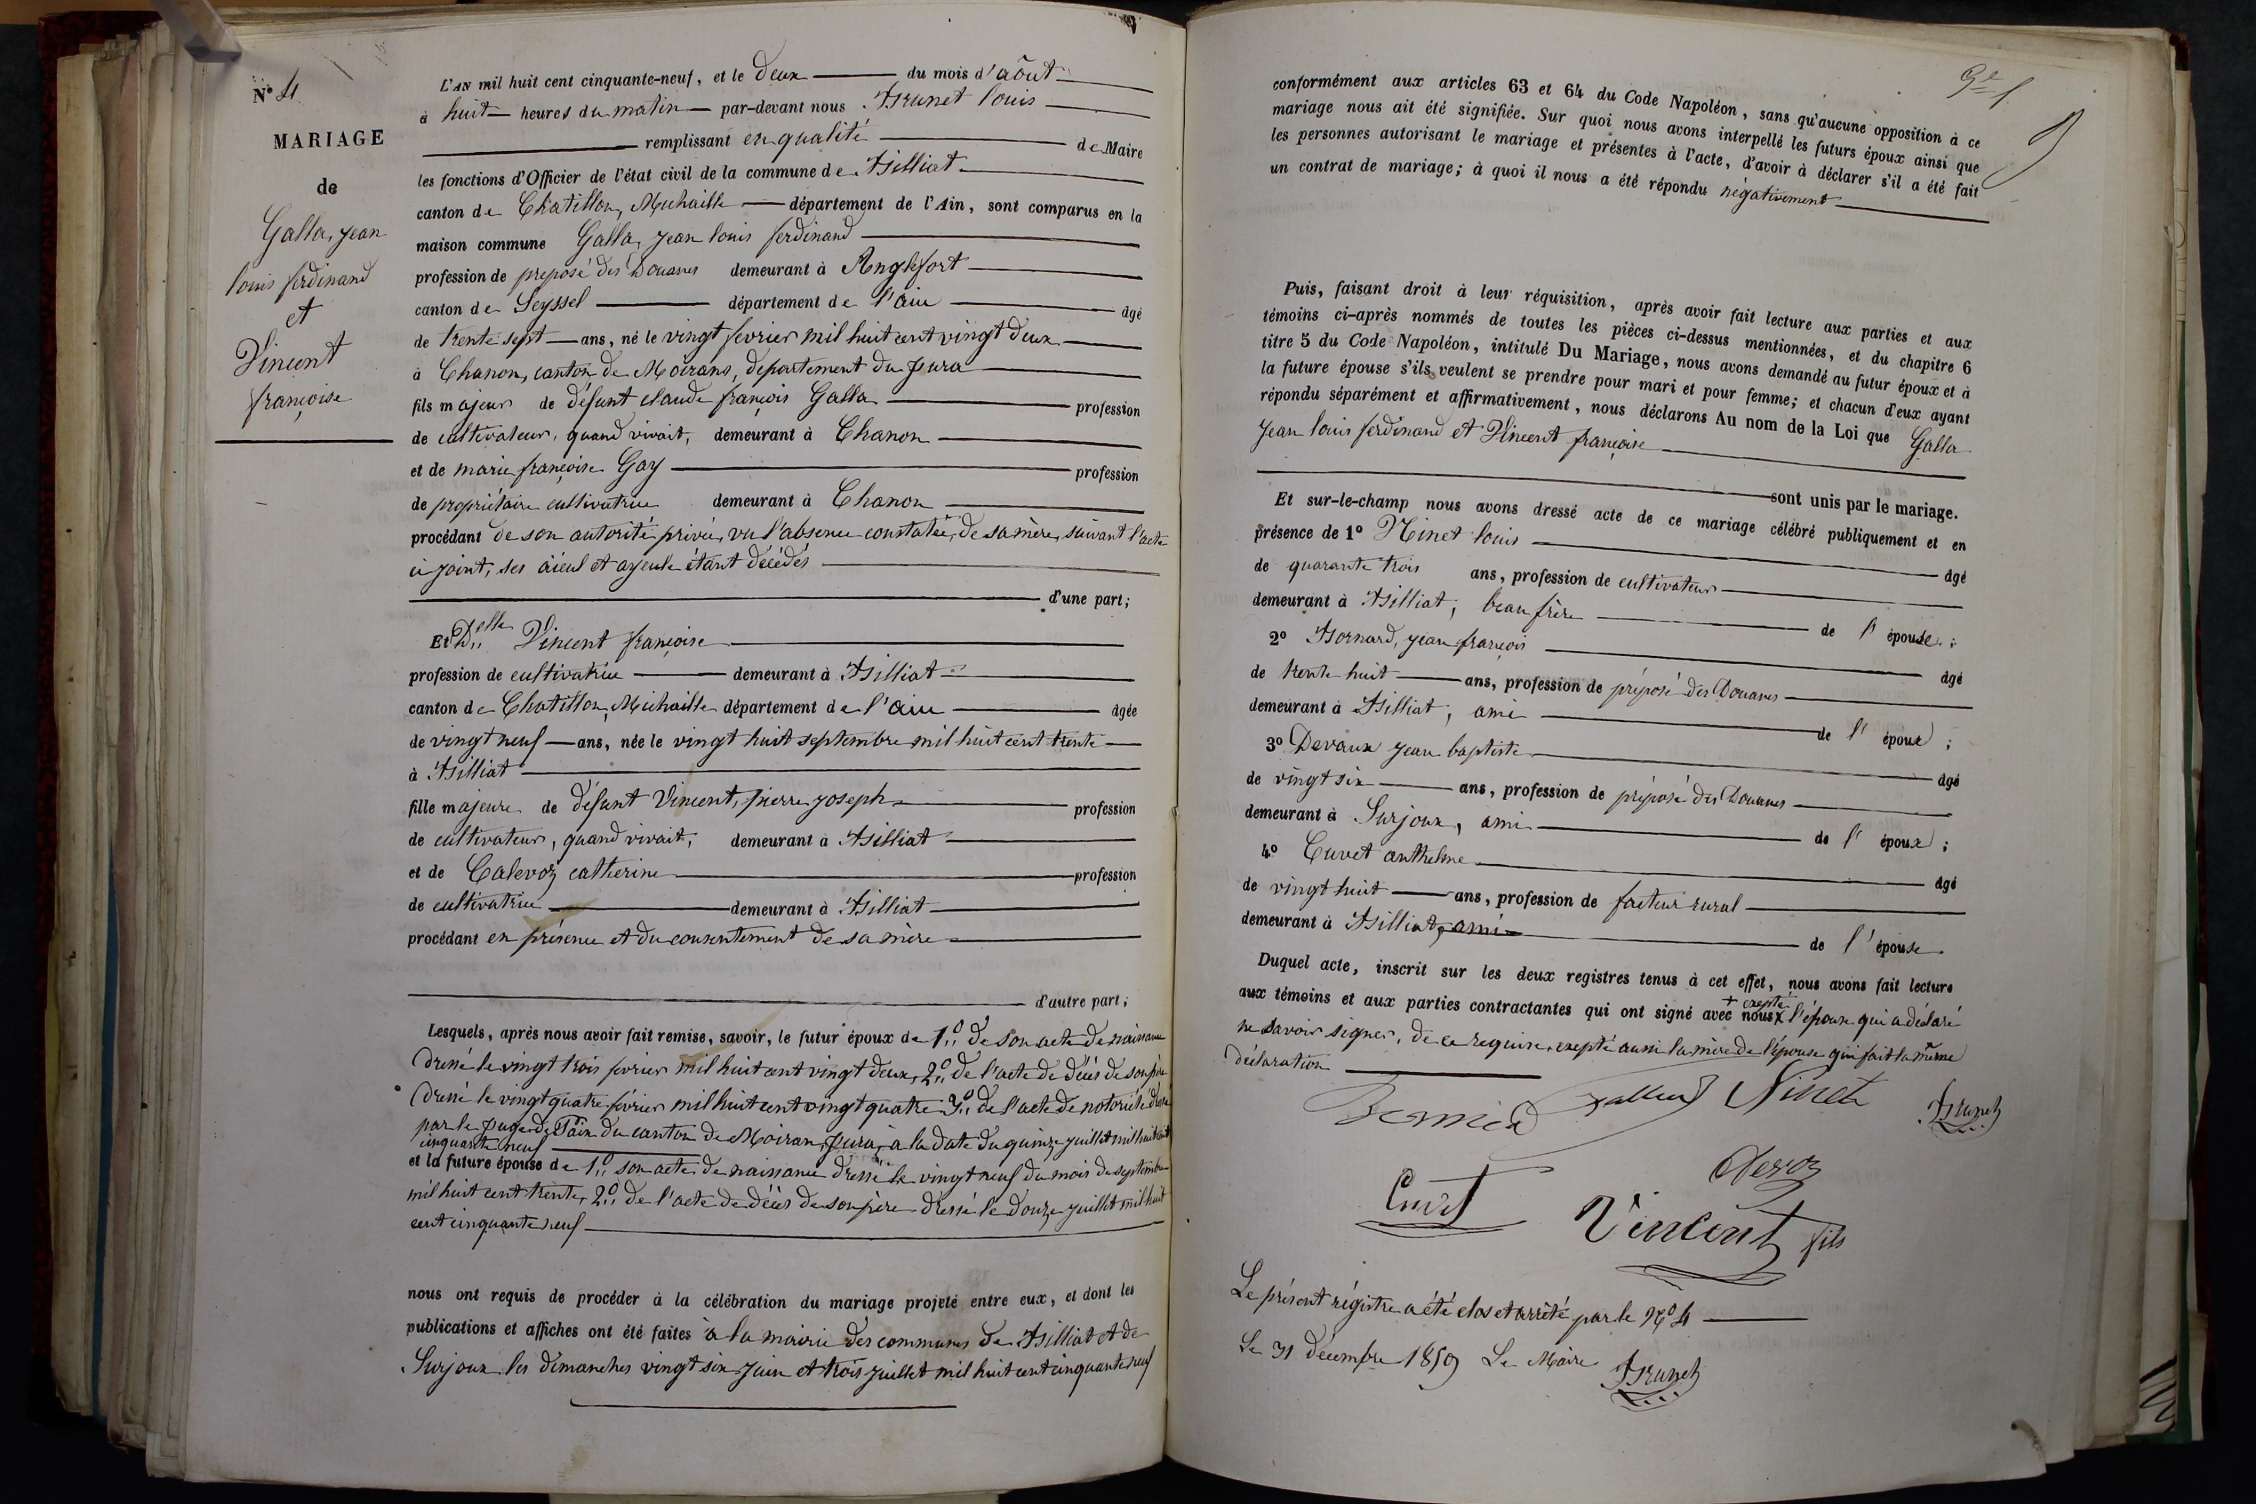 N° 4
MARIAGE
de
Galla, jean
louis ferdinand
et
Vincent
françoise
L'AN mil huit cent cinquante-neuf, et le deux du mois d'août
à huit heures du matin par-devant nous Brunet louis
remplissant en qualité de Maire
les fonctions d'Officier de l'état civil de la commune de Billiat
canton de Chatillon, Michaille département de l'Ain, sont comparus en la
maison commune Galla, jean louis ferdinand
profession de preposé des Douanes demeurant à Anglefort
canton de Seyssel département de l'ain âgé
de trente sept ans, né le vingt fevrier mil huit cent vingt deux
à Chanon, canton de Moirans, departement du jura
fils majeur de défunt claude françois Galla profession
de cultivateur, quand vivait, demeurant à Chanon
et de marie françoise Gay profession
de propriétaire cultivatrice demeurant à Chanon
procédant de son autorité privée, vu l'absence constatée, de sa mère, suivant l'acte
ci joint, ses äieul et ayeule étant décédés
d'une part;
Et Delle Vincent françoise
profession de cultivatrice demeurant à Billiat
canton de Chatillon, Michaille département de l'ain âgée
de vingt neuf ans, née le vingt huit septembre mil huit cent trente
à Billiat
fille majeure de défunt Vincent, pierre joseph profession
de cultivateur, quand vivait, demeurant à Billiat
et de Calevoz catherine profession
de cultivatrice demeurant à Billiat
procédant en présence et du consentement de sa mère
d'autre part;
Lesquels, après nous avoir fait remise, savoir, le futur époux de 1° de son acte de naissance
dressé le vingt trois fevrier mil huit cent vingt deux, 2° de l'acte de décès de son père
dressé le vingt quatre février mil huit cent vingt quatre 3° de l'acte de notoriété dressé
par le juge de Paix du canton de Moiran, jura, à la date du quinze juillet mil huit cent
cinquante neuf
et la future épouse de 1° son acte de naissance dressé le vingt neuf du mois de septembre
mil huit cent trente, 2° de l'acte de décès de son père dressé le douze juillet mil huit
cent cinquante neuf
nous ont requis de procéder à la célébration du mariage projeté entre eux, et dont les
publications et affiches ont été faites à la mairie des communes de Billiat et de
Surjoux les dimanches vingt six juin et trois juillet mil huit cent cinquante neuf
conformément aux articles 63 et 64 du Code Napoléon, sans qu'aucune opposition à ce
mariage nous ait été signifiée. Sur quoi nous avons interpellé les futurs époux ainsi que
les personnes autorisant le mariage et présentes à l'acte, d'avoir à déclarer s'il a été fait
un contrat de mariage; à quoi il nous a été répondu négativement
Puis, faisant droit à leur réquisition, après avoir fait lecture aux parties et aux
témoins ci-après nommés de toutes les pièces ci-dessus mentionnées, et du chapitre 6
titre 5 du Code Napoléon, intitulé Du Mariage, nous avons demandé au futur époux et à
la future épouse s'ils veulent se prendre pour mari et pour femme; et chacun d'eux ayant
répondu séparément et affirmativement, nous déclarons Au nom de la Loi que Galla
jean louis ferdinand et Vincent françoise
sont unis par le mariage.
Et sur-le-champ nous avons dressé acte de ce mariage célébré publiquement et en
présence de 1° Ninet louis âgé
de quarante trois ans, profession de cultivateur
demeurant à Billiat, beau frère de l'épouse;
2° Bornard, jean françois âgé
de trente huit ans, profession de préposé des Douanes
demeurant à Billiat, ami de l'époux;
3° Devaux jean baptiste âgé
de vingt six ans, profession de préposé des Douanes
demeurant à Surjoux, ami de l'époux;
4° Cuvet anthelme âgé
de vingt huit ans, profession de facteur rural
demeurant à Billiat, ami de l'épouse
Duquel acte, inscrit sur les deux registres tenus à cet effet, nous avons fait lecture
aux témoins et aux parties contractantes qui ont signé avec nous + exepté l'épouse qui a déclaré
ne savoir signer, de ce requise, exepté aussi la mère de l'épouse qui fait la même
déclaration
Ninet
Brunet
Cuvet
Vincent fils
Le présent régistre a été clos et arrêté par le N° 4
Le 31 décembre 1859 Le Maire Brunet